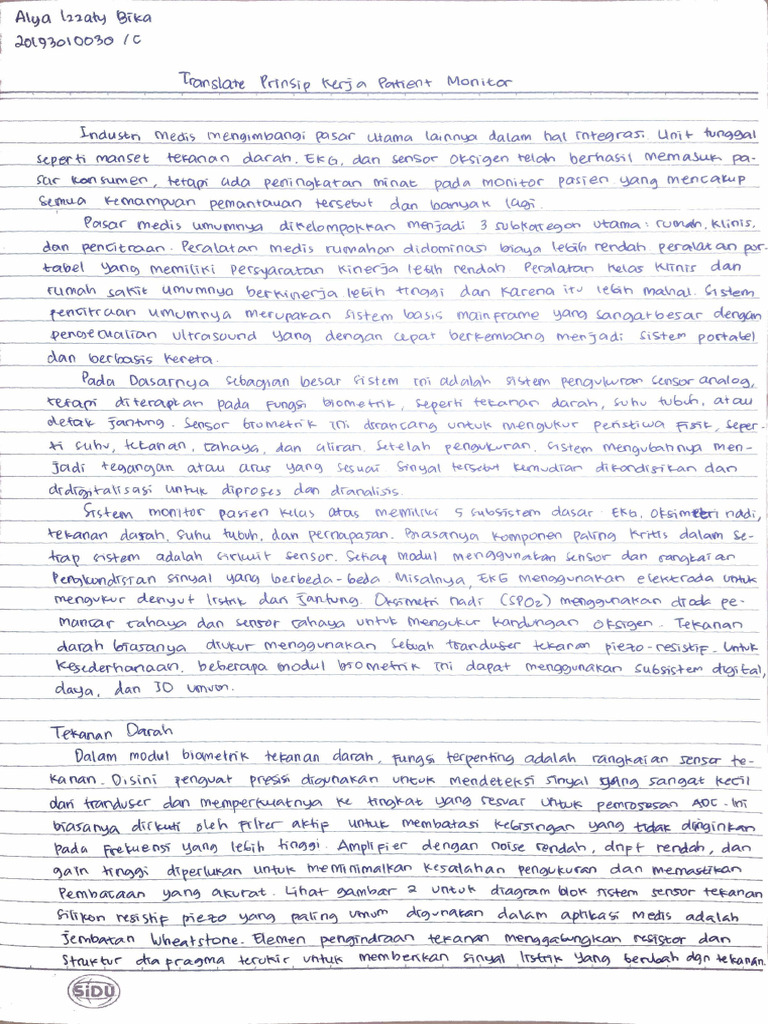 Alya Izzaty Bika
20193010030 / C
Translate Prinsip Kerja Patient Monitor
Industri medis mengimbangi pasar utama lainnya dalam hal integrasi. Unit tunggal
seperti manset tekanan darah. EKG, dan sensor oksigen telah berhasil memasuk pa-
sar konsumen, tetapi ada peningkatan minat pada monitor pasien yang mencakup
semua kemampuan pemantauan tersebut dan banyak lagi.
Pasar medis umumnya dikelompokkan menjadi 3 subkategori utama: rumah, klinis,
dan pencitraan. Peralatan medis rumahan didominasi biaya lebih rendah peralatan por-
tabel yang memiliki persyaratan kinerja lebih rendah Peralatan kelas klinis dan
rumah sakit umumnya berkinerja lebih tinggi dan karena itu lebih mahal. Sistem
pencitraan umumnya merupakan sistem basis mainframe yang sangat besar dengan
pengecualian ultrasound yang dengan cepat berkembang menjadi sistem portabel
dan berbasis kereta.
Pada Dasarnya sebagian besar sistem ini adalah sistem pengukuran sensor analog,
tetapi diterapkan pada fungsi biometrik, seperti tekanan darah, suhu tubuh, atau
detak jantung. Sensor biometrik ini dirancang untuk mengukur peristiwa fisik, seper-
ti suhu, tekanan, cahaya, dan aliran. Setelah pengukuran, sistem mengubahnya men-
jadi tegangan atau arus yang sesuai sinyal tersebut kemudian dikondisikan dan
didigitalisasi untuk diproses dan dianalisis.
Sistem monitor pasien kelas atas memiliki 5 subsistem dasar EKG, oksimetri nadi,
tekanan darah, suhu tubuh, dan pernapasan. Biasanya komponen paling kritis dalam se-
tiap sistem adalah sirkuit sensor. Setiap modul menggunakan sensor dan rangkaian
Pengkondisian sinyal yang berbeda-beda. Misalnya, EKG menggunakan elektroda untuk
mengukur denyut listrik dari jantung. Oksimetri nadi (SPO2) menggunakan dioda pe-
mancar cahaya dan sensor cahaya untuk mengukur kandungan oksigen. Tekanan
darah biasanya diukur menggunakan sebuah tranduser tekanan piezo-resistif. Untuk
kesederhanaan, beberapa modul biometrik ini dapat menggunakan subsistem digital,
daya, dan IO umum.
Tekanan Darah
Dalam modul biometrik tekanan darah, fungsi terpenting adalah rangkaian sensor te-
kanan. Disini penguat presisi digunakan untuk mendeteksi sinyal yang sangat kecil
dari tranduser dan memperkuatnya ke tingkat yang sesuai untuk pemrosesan ADC. Ini
biasanya diikuti oleh filter aktif untuk membatasi kebisingan yang tidak diinginkan
pada frekuensi yang lebih tinggi. Amplifier dengan noise rendah, drift rendah, dan
gain tinggi diperlukan untuk meminimalkan kesalahan pengukuran dan memastikan
Pembacaan yang akurat. Lihat gambar 2 untuk diagram blok sistem sensor tekanan
silikon resistif piezo yang paling umum digunakan dalam aplikasi medis adalah
jembatan Wheatstone. Elemen pengindraan tekanan menggabungkan resistor dan
struktur diapragma terukir untuk memberikan sinyal listrik yang berubah dgn tekanan.
SiDU